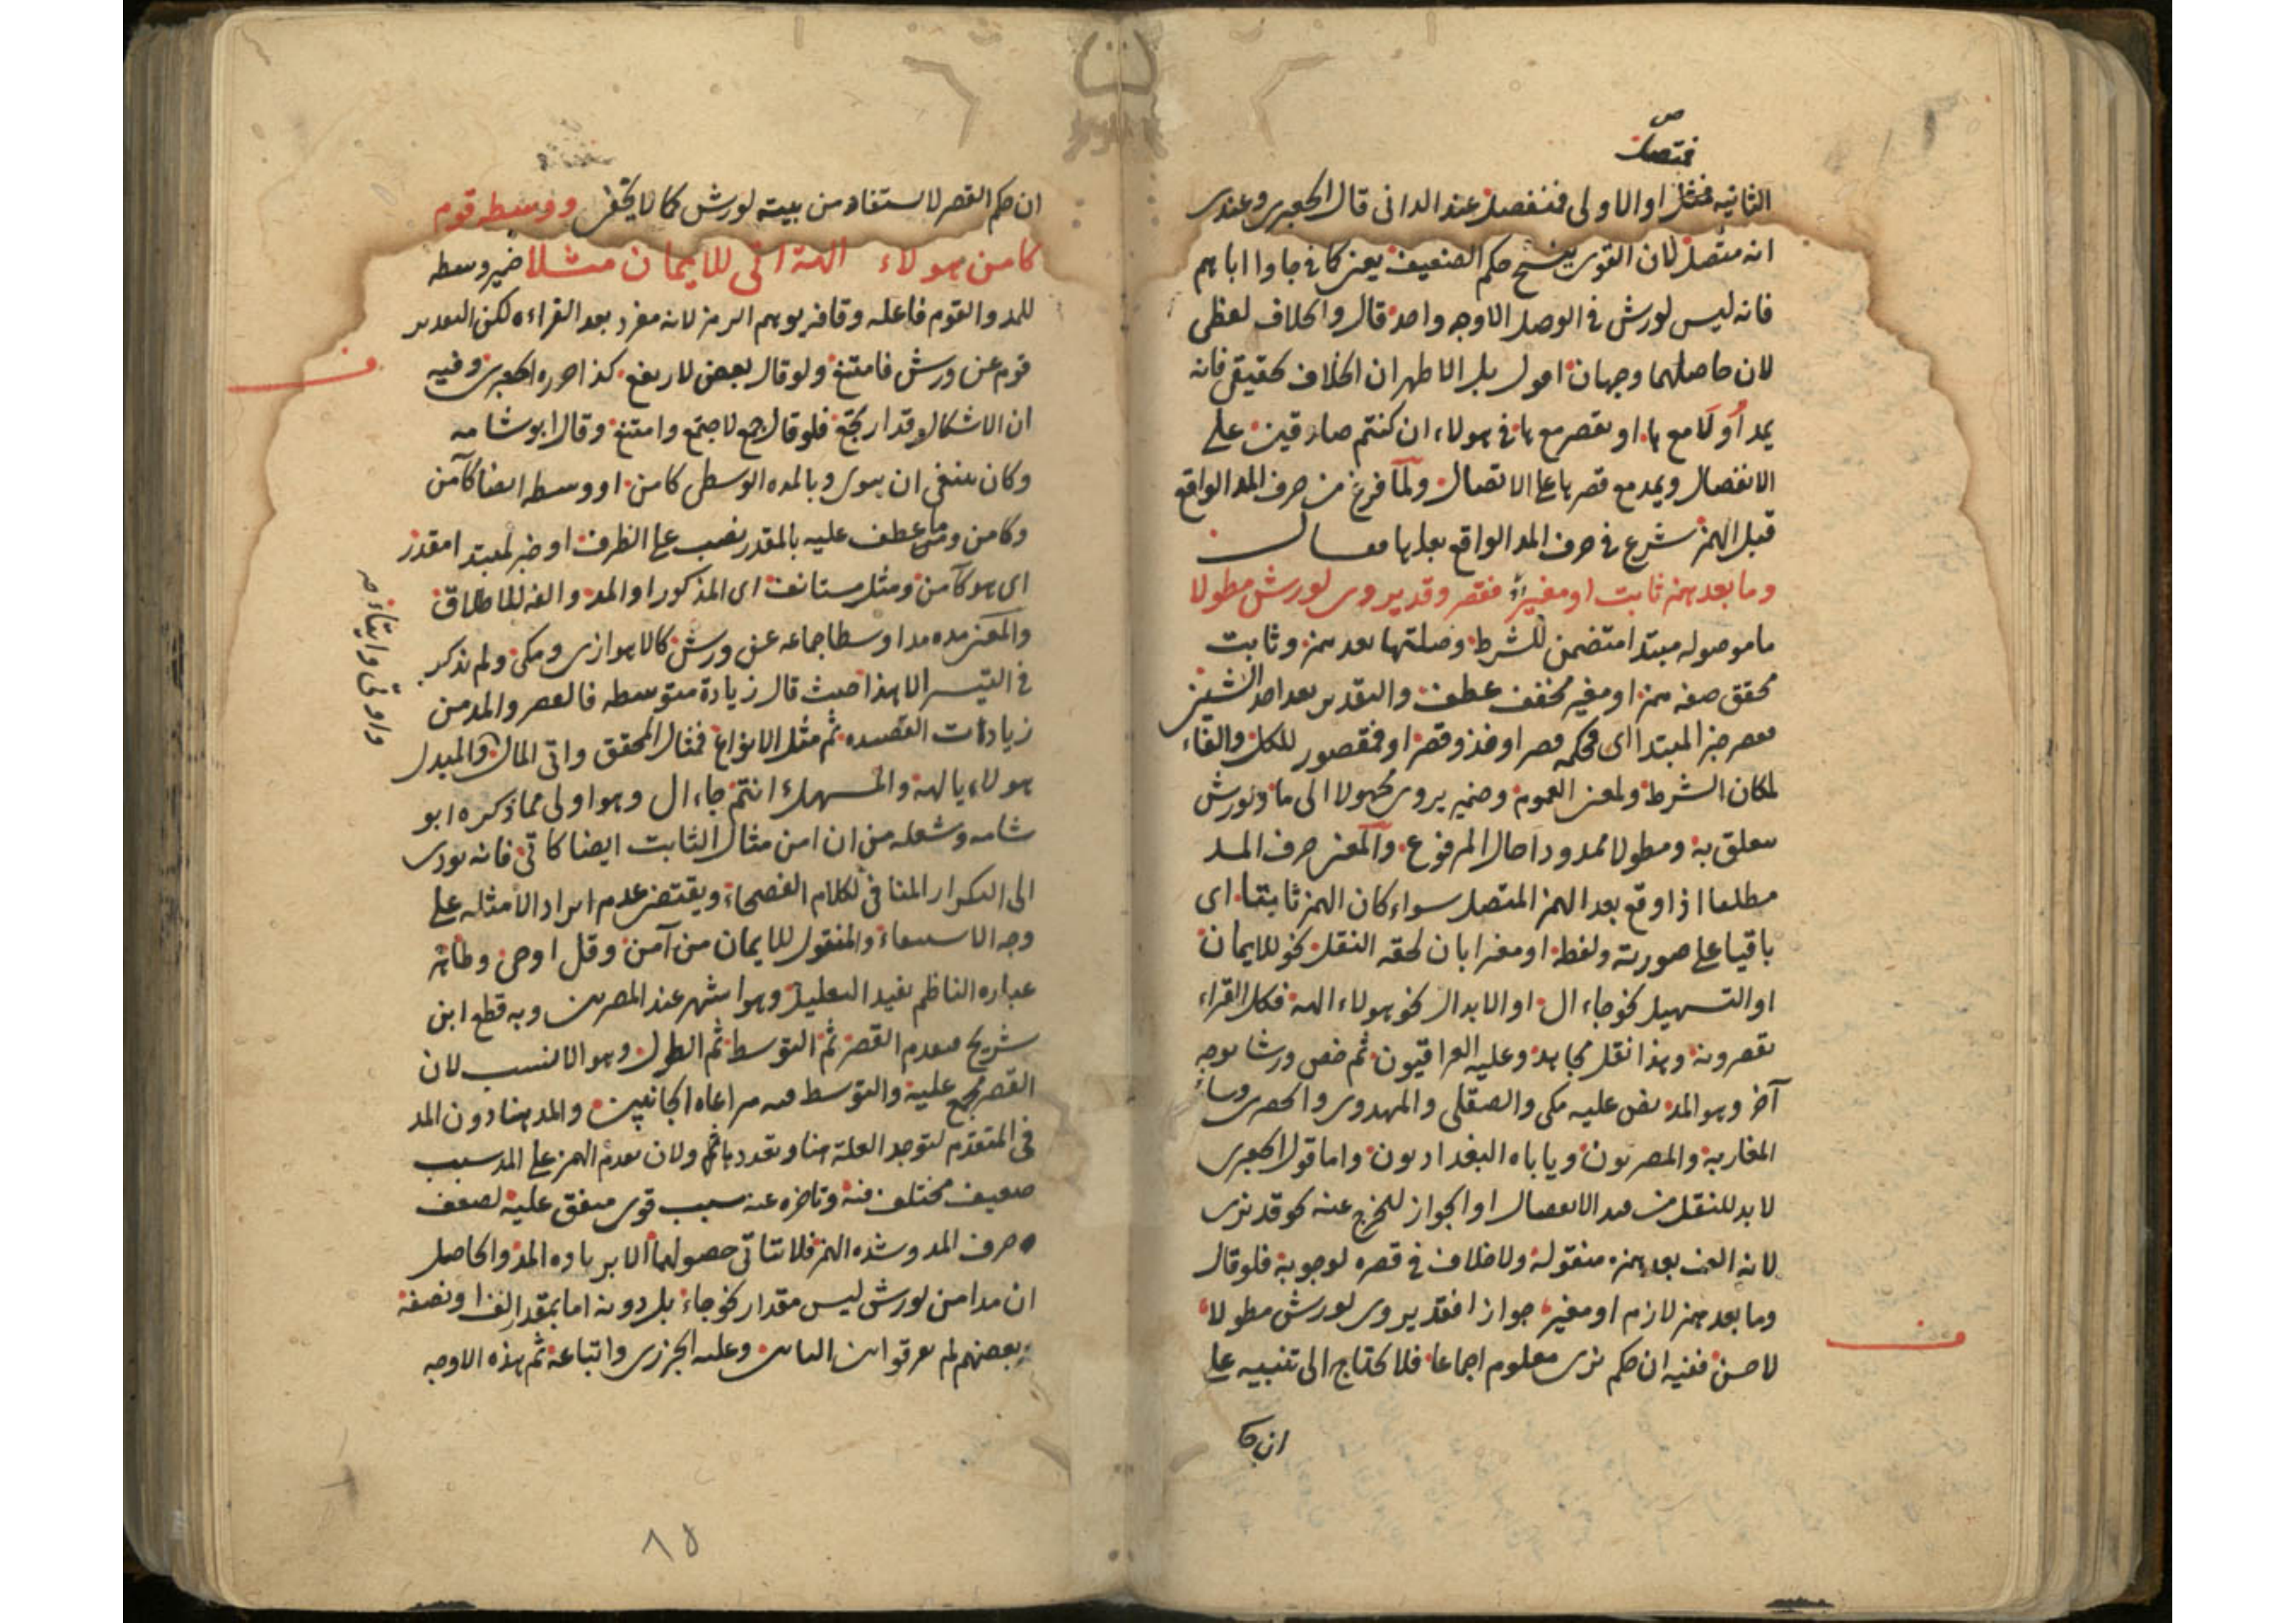 فمتصل ص
الثانية فمثل او الاولى فمنفصل عند الداني قال الجعبري وعندي
انه متصل لان القوي ينسخ حكم الضعيف يعني كما في جاوا اباهم
فانه ليس لورش في الوصل الا وجه واحد قال والخلاف لفظي
لان حاصلهما وجهان اقول بل الاظهر ان الخلاف حقيقي فانه
يمد أولا مع ها او يقصر مع ها في هولاء ان كنتم صادقين على
الانفصال ويمد مع قصر ها على الاتصال ولما فرغ من حرف المد الواقع
قبل الهمز شرع في حرف المد الواقع بعدها فقال
وما بعد همز ثابت او مغير فقصر وقد يروى لورش مطولا
ما موصوله مبتدا متضمن للشرط وصلتها بعد همز وثابت
محقق صفه همز او مغير مخفف عطف والتقدير بعد احد الشيئين
فقصر خبر المبتدا اى فحكمه قصر او فذو قصر او فمقصور للكل والفاء
لمكان الشرط ولمعنى العموم وضمير يروى مجهولا الى ما ولورش
متعلق به ومطولا ممدودا حال المرفوع والمعنى حرف المد
مطلقا اذا وقع بعد الهمز المتصل سواء كان الهمز ثابتا اى
باقيا على صورته ولفظه او مغيرا بان لحقه النقل نحو للايمان
او التسهيل نحو جاء ال او الابدال نحو هولاء الهة فكل القراء
يقصرونه وهذا نقل مجاهد وعليه العراقيون ثم خص ورشا بوجه
آخر وهو المد نص عليه مكي والصقلي والمهدوي والحصري وساير
المغاربة والمصريون ويأباه البغداديون واما قول الجعبري
لا بد للنقل من قيد الانفصال او الجواز للخرج عنه نحو قد نرى
لانه الف بعد همزه منقوله ولا خلاف في قصره لوجوبه فلو قال
وما بعد همز لازم او مغير جوازا فقد يروى لورش مطولا
لاحسن ففيه ان حكم نرى معلوم اجماعا فلا يحتاج الى تنبيه على
ان حكم القصر لا يستفاد من بيته لورش كما لا يخفى ووسطه قوم
كآمن هولاء الهة اتى للايمان مثلا ضمير وسطه
للمد والقوم فاعله وقافه يوهم الرمز لانه مفرد بعد القراءه لكن التقدير
قوم عن ورش فامتنع ولو قال بعض لارتفع كذا حرره الجعبري وفيه
ان الاشكال قد ارتجع فلو قال جمع لاجتمع وامتنع وقال ابو شامه
وكان ينبغي ان يسوى وبالمده الوسطى كامن او ووسطه ايضا كآمن
وكامن وما عطف عليه بالمقدر نصب على الظرف او خبر لمبتدا مقدر
اى هو كآمن ومثل مستانف اى المذكور او المد والفه للاطلاق
والمعنى مده مدا وسطا جماعه عن ورش كالاهوازي ومكي ولم يذكر
في التيسير الا هذا حيث قال زيادة متوسطه فالقصر والمد من
زيادات القصيده ثم مثل الانواع فمثال المحقق واتى المال والمبدل
هولاء يالهة والمسهل ءانتم جاء ال وهو اولى مما ذكره ابو
شامه وشعله من ان امن مثال الثابت ايضا كاتى فانه يودي
الى التكرار المنافي لكلام الفصحاء ويقتضي عدم ايراد الامثله على
وجه الاستيفاء والمنقول للايمان من آمن وقل اوحى وظاهر
عباره الناظم يفيد التعليل وهو اشهر عند المصريين وبه قطع ابن
شريح فيقدم القصر ثم التوسط ثم الطول وهو الانسب لان
القصر مجمع عليه والتوسط فيه مراعاه الجانبين والمد هنا دون المد
في المتقدم لتوحد العلة هنا وتعددها ثم ولان تقدم الهمز على المد سبب
ضعيف مختلف فيه وتاخره عنه سبب قوي متفق عليه لضعف
حرف المد وشده الهمز فلا يتاتى حصولهما الا بزياده المد والحاصل
ان مد امن لورش ليس مقدار نحو جاء بل دونه اما بمقدار الف او نصفه
وبعضهم لم يفرقوا بين البابين وعليه الجزري واتباعه ثم هذه الاوجه
ان حكم
٨٥